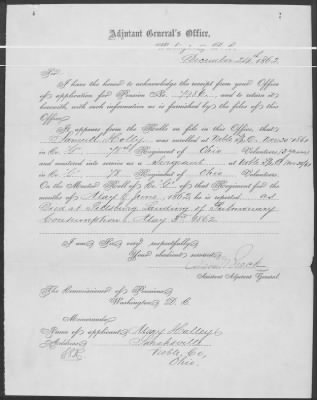 Adjutant General's Office,
Washington, D. C.
December 24th, 1862
Sir:
I have the honor to acknowledge the receipt from your Office
of application for Pension No. and to return it
herewith, with such information as is furnished by the files of this
Office.
It appears from the Rolls on file in this Office, that
Samuel was enrolled at Noble Co
in Co. 78th Regiment of Ohio Volunteers,
and mustered into service as a Sergeant at Noble
in Co. 78 Regiment of Ohio Volunteers.
On the Muster Roll of Co. of that Regiment for the
months of May & June, 1862, he is reported as
Died at Pittsburg Landing of Pulmonary
Consumption May 3d 1862
I am Sir, very respectfully
Your obedient servant,
Assistant Adjutant General.
The Commissioner of Pensions
Washington D. C.
Memoranda
Name of applicant, Mary
Address, Sarahsville
Noble Co,
Ohio.